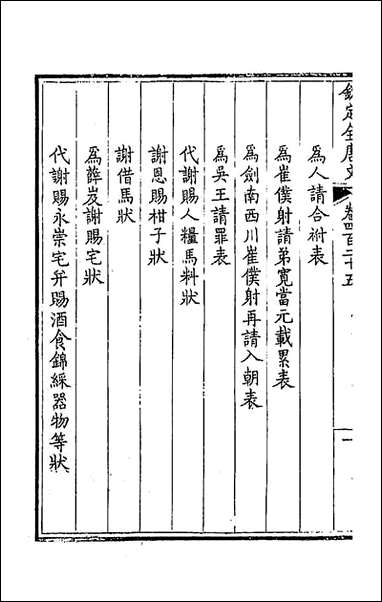 欽定全唐文 卷四百二十五 一
爲人請合祔表
爲崔僕射請弟寬當元載累表
爲劍南西川崔僕射再請入朝表
爲吳王請罪表
代謝賜人糧馬料狀
謝恩賜柑子狀
謝借馬狀
爲薛岌謝賜宅狀
代謝賜永崇宅弁賜酒食錦綵器物等狀